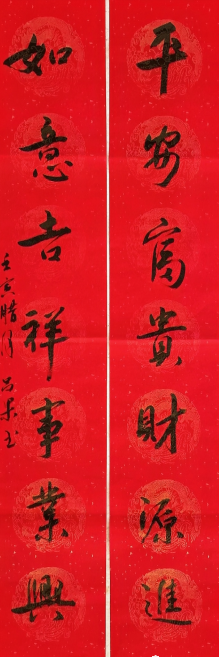 平安富貴財源進
如意吉祥事業興
壬寅腊月